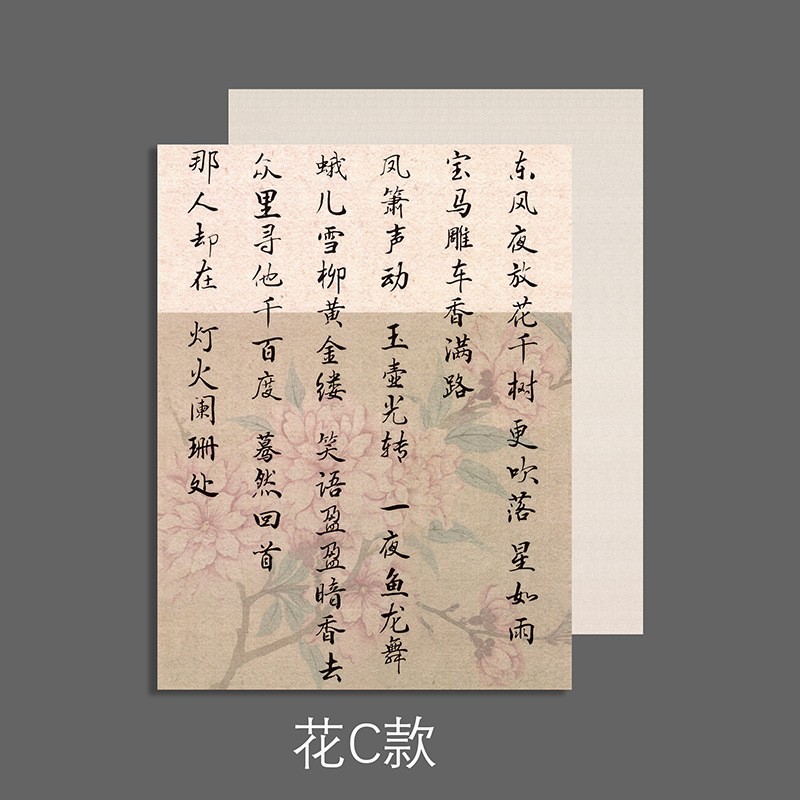 东风夜放花千树 更吹落 星如雨
宝马雕车香满路
凤箫声动 玉壶光转 一夜鱼龙舞
蛾儿雪柳黄金缕 笑语盈盈暗香去
众里寻他千百度 蓦然回首
那人却在 灯火阑珊处
花C款